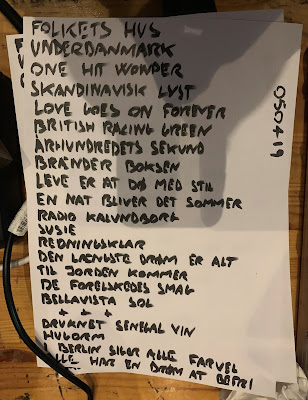 FOLKETS HUS
UNDERDANMARK
ONE HIT WONDER
SKANDINAVISK LYST
LOVE GOES ON FOREVER
BRITISH RACING GREEN
ÅRHUNDREDETS SEKUND
BRÆNDER BOKSEN
LEVE ER AT DØ MED STIL
EN NAT BLIVER DET SOMMER
RADIO KALUNDBORG
SUSIE
REDNINGSKLAR
DEN LÆNGSTE DRØM ER ALT
TIL JORDEN KOMMER
DE FORELSKEDES SMAG
BELLAVISTA SOL
+ + +
DRUKNET SENEGAL VIN
HUGORM
I BERLIN SIGER ALLE FARVEL
ALLE HAR EN DRØM AT BEFRI
050419